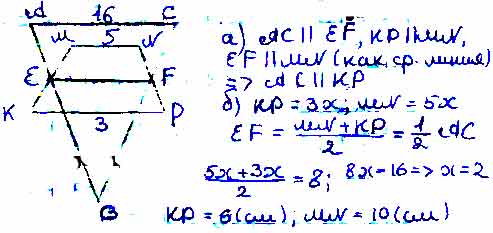 A 16 C
M 5 N
E F
K 3 P
B
а) AC || EF, KP || MN,
EF || MN (как ср. линия)
=> AC || KP
б) KP = 3x; MN = 5x
EF = (MN + KP)/2 = 1/2 AC
(5x + 3x)/2 = 8; 8x = 16 => x = 2
KP = 6 (см); MN = 10 (см)